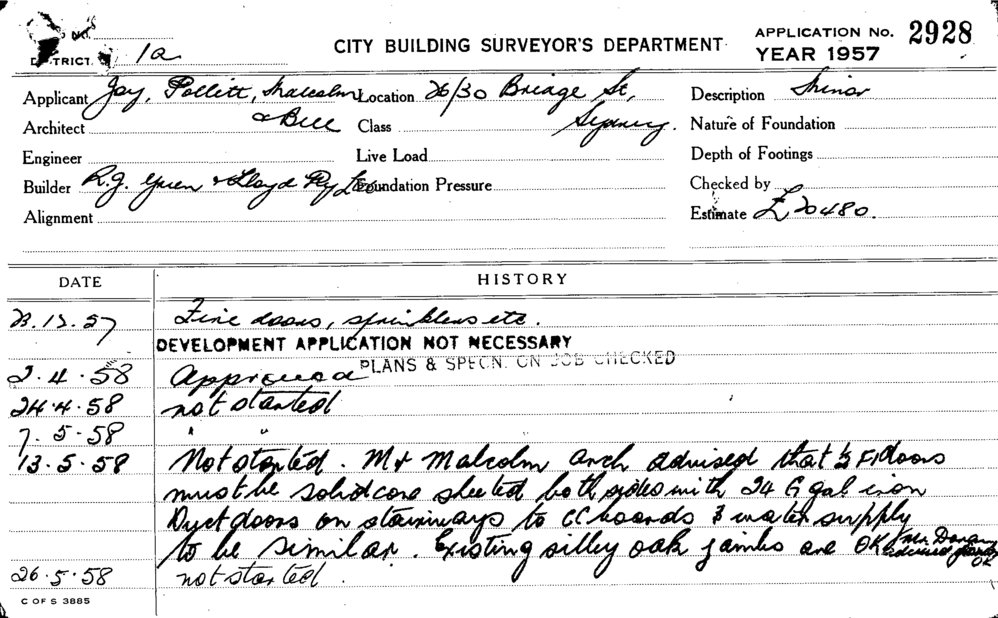 DISTRICT. 1a
CITY BUILDING SURVEYOR'S DEPARTMENT
APPLICATION No. 2928
YEAR 1957
Applicant Jay, Pollitt, Malcolm & Bell
Location 26/30 Bridge St, Sydney.
Description Minor
Architect
Class
Nature of Foundation
Engineer
Live Load
Depth of Footings
Builder R.G. & Lloyd Pty Ltd
Foundation Pressure
Checked by
Alignment
Estimate £20480.
DATE HISTORY
23.12.57 Fire doors, sprinklers etc.
DEVELOPMENT APPLICATION NOT NECESSARY
PLANS & SPECN. ON JOB CHECKED
2.4.58 Approved
24.4.58 not started
7.5.58 " "
13.5.58 Not started. Mr Malcolm arch advised that doors
must be solid core sheeted both sides with 24 G gal iron
Duct doors on stairways to boards & water supply
to be similar. Existing silky oak jambs are OK
advised OK
26.5.58 not started.
C OF S 3885